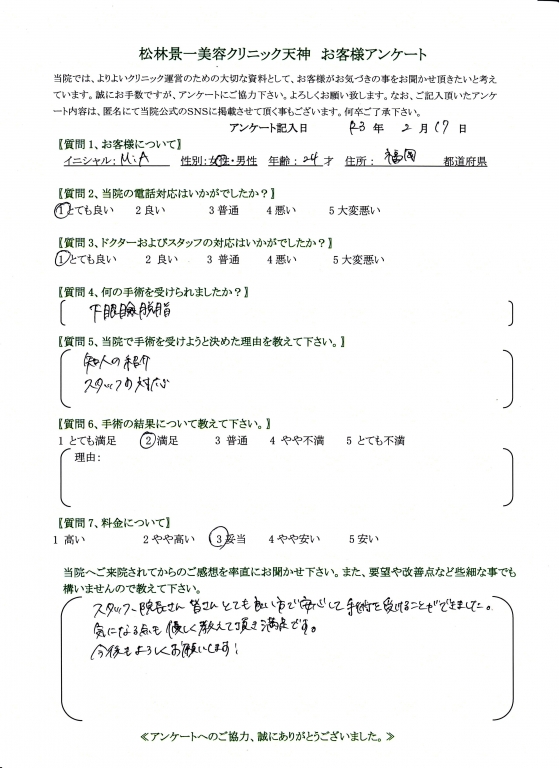 松林景一美容クリニック天神　お客様アンケート
当院では、よりよいクリニック運営のための大切な資料として、お客様がお気づきの事をお聞かせ頂きたいと考え
ています。誠にお手数ですが、アンケートにご協力下さい。よろしくお願い致します。なお、ご記入頂いたアンケ
ート内容は、匿名にて当院公式のSNSに掲載させて頂く事もございます。何卒ご了承下さい。
アンケート記入日　R3 年　2 月 17 日
〖質問1、お客様について〗
イニシャル: M.A　性別:女性・男性　年齢：24才　住所：福岡　都道府県
〖質問2、当院の電話対応はいかがでしたか？〗
1とても良い　2 良い　3 普通　4 悪い　5 大変悪い
〖質問3、ドクターおよびスタッフの対応はいかがでしたか？〗
1とても良い　2 良い　3 普通　4 悪い　5 大変悪い
〖質問4、何の手術を受けられましたか？〗
下眼瞼脱脂
〖質問5、当院で手術を受けようと決めた理由を教えて下さい。〗
知人の紹介
スタッフの対応
〖質問6、手術の結果について教えて下さい。〗
1 とても満足　2 満足　3 普通　4 やや不満　5 とても不満
理由：
〖質問7、料金について〗
1 高い　2 やや高い　3 妥当　4 やや安い　5 安い
当院へご来院されてからのご感想を率直にお聞かせ下さい。また、要望や改善点など些細な事でも
構いませんので教えて下さい。
スタッフ、院長さん 皆さん とても良い方で安心して手術を受けることができました。
気になる点も優しく教えて頂き満足です。
今後もよろしくお願いします！
≪アンケートへのご協力、誠にありがとうございました。≫